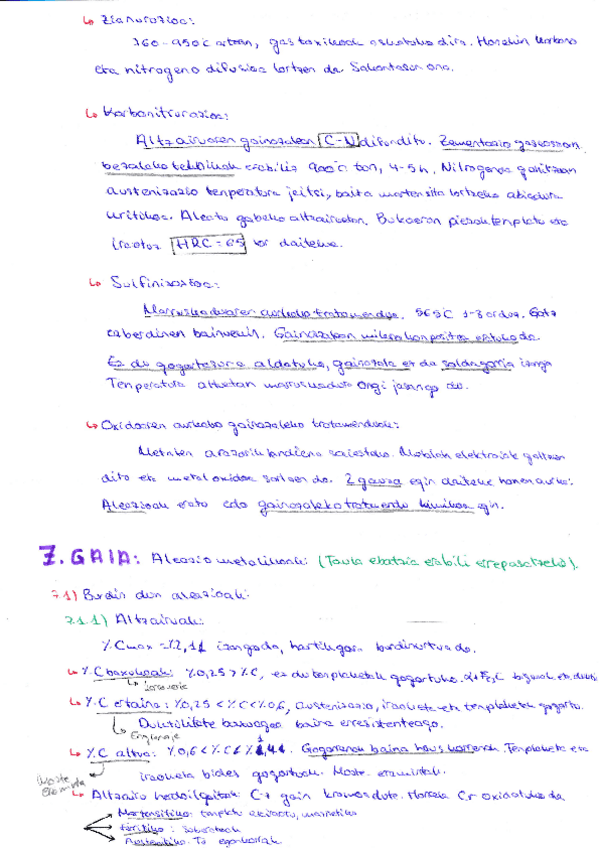 ↳ Zianurazioa:
760-950°C artean, gas toxikoak askatuko dira. Honekin karbono
eta nitrogeno difusioa lortzen da. Sakontasun ona.
↳ Karbonitrurazioa:
Altzairuaren gainazalean C-N difunditu. Zementazio gaseosoan
bezalako teknikak erabiliz 900°C tan, 4-5h. Nitrogenoa gehitzean
austenizazio tenperatura jeitsi, baita martensita lortzeko abiadura
kritikoa. Aleatu gabeko altzairuetan. Bukaeran piezak tenplatu eta
iraotuz HRC = 65 lor daiteke.
↳ Sulfinizazioa:
Marruskaduraren aurkako tratamendua. 565°C 1-3 orduz. Gatz
ezberdinen bainuekin. Gainazalean mikrokonposizioa aldatuko da.
Ez du gogortasuna aldatuko, gainazala ez da
Tenperatura altuetan marruskadura ongi jasango du.
↳ Oxidoaren aurkako gainazaleko tratamenduak:
Metalen arazorik handiena saiestuko. Metalak elektroiak galtzen
ditu eta metal oxidoa sortzen da. 2 gauza egin daiteke honen aurka:
Aleazioak erabili edo gainazaleko tratamendu kimikoa egin.
7. GAIA: Aleazio metalikoak: (Taula ebatzia erabili errepasatzeko).
7.1) Burdin dun aleazioak:
7.1.1) Altzairuak:
%Cmax = %2,11 izango da, hortik gora burdinurtua da.
↳ %C baxukoak: %0,25 > %C, ez du tenplaketak gogortuko. α + Fe₃C
↳ %C ertaina: %0,25 < %C < %0,6, Austenizazio, iraoketa eta tenplaketak gogortu.
↳ Engranaje Duktilitate baxuagoa baina erresistenteagoa.
↳ %C altua: %0,6 < %C < Gogorrenak baina hauskorrenak. Tenplaketa eta
iraoketa bidez gogortuak.
↳ Altzairu herdoilgaitzak: Cr gain kromoa dute. Honela Cr oxidatuko da
Martensitiko: tenplatu magnetiko
Ferritiko:
Austenitiko: